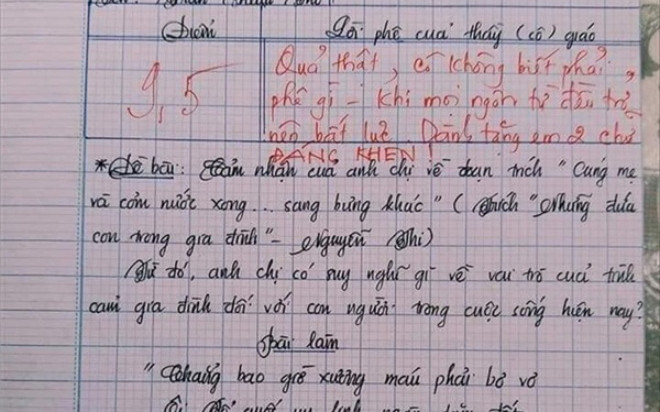 Điểm
Lời phê của thầy (cô) giáo
9,5
Quả thật, cô không biết phải
phê gì - khi mọi ngôn từ đều trở
nên bất lực. Dành tặng em 2 chữ
ĐÁNG KHEN!
*Đề bài: Cảm nhận của anh chị về đoạn trích "Cúng mẹ
và cơm nước xong... sang bưng khác" (Trích "Những đứa
con trong gia đình" - Nguyễn Thi)
Từ đó, anh chị có suy nghĩ gì về vai trò của tình
cảm gia đình đối với con người trong cuộc sống hiện nay?
Bài làm
"Chẳng bao giờ xương máu phải bơ vơ